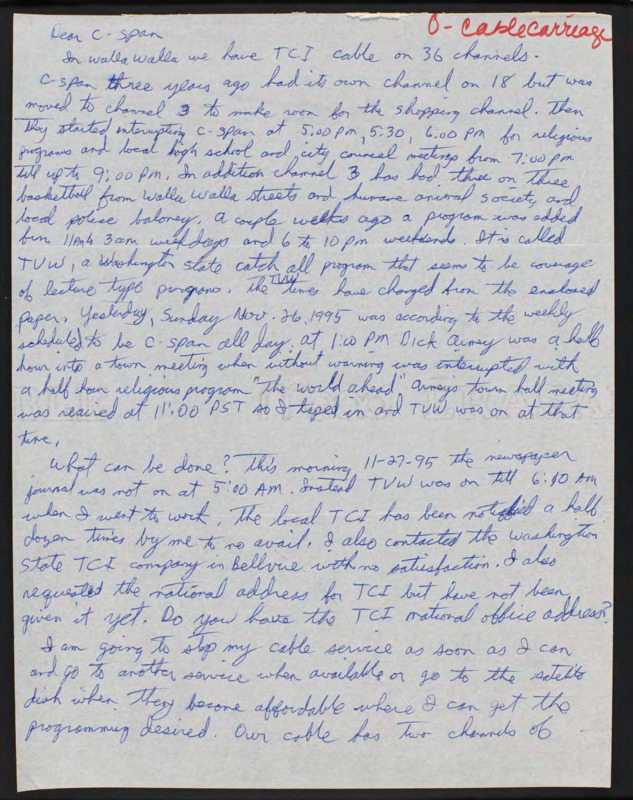 O- Cablecarriage
Dear C-span
In walla walla we have TCI cable on 36 channels.
C-span three years ago had its own channel on 18 but was
moved to channel 3 to make room for the shopping channel. Then
they started interrupting C-span at 5:00 pm, 5:30, 6:00 PM for religious
programs and local high school and city council meetings from 7:00 pm
till up to 9:00 PM. In addition channel 3 has had three on three
basketball from walla walla streets and humane animal society, and
local police baloney. A couple weeks ago a program was added
from 11am to 3am weekdays and 6 to 10 pm weekends. It is called
TVW, a Washington state catch all program that seems to be coverage
of lecture type programs. The TVW times have changed from the enclosed
paper. Yesterday, Sunday Nov. 26, 1995 was according to the weekly
schedule to be C-span all day. at 1:00 PM Dick Armey was a half
hour into a town meeting when without warning was interrupted with
a half hour religious program "the world ahead" armeys town hall meeting
was reaired at 11:00 PST so I taped in and TVW was on at that
time.
What can be done? This morning 11-27-95 the newspaper
journal was not on at 5:00 AM. Instead TVW was on till 6:10 AM
when I went to work. The local TCI has been notified a half
dozen times by me to no avail. I also contacted the Washington
State TCI company in Bellvue with no satisfaction. I also
requested the national address for TCI but have not been
given it yet. Do you have the TCI national office address?
I am going to stop my cable service as soon as I can
and go to another service when available or go to the satelite
dish when they become affordable where I can get the
programming desired. Our cable has two channels of